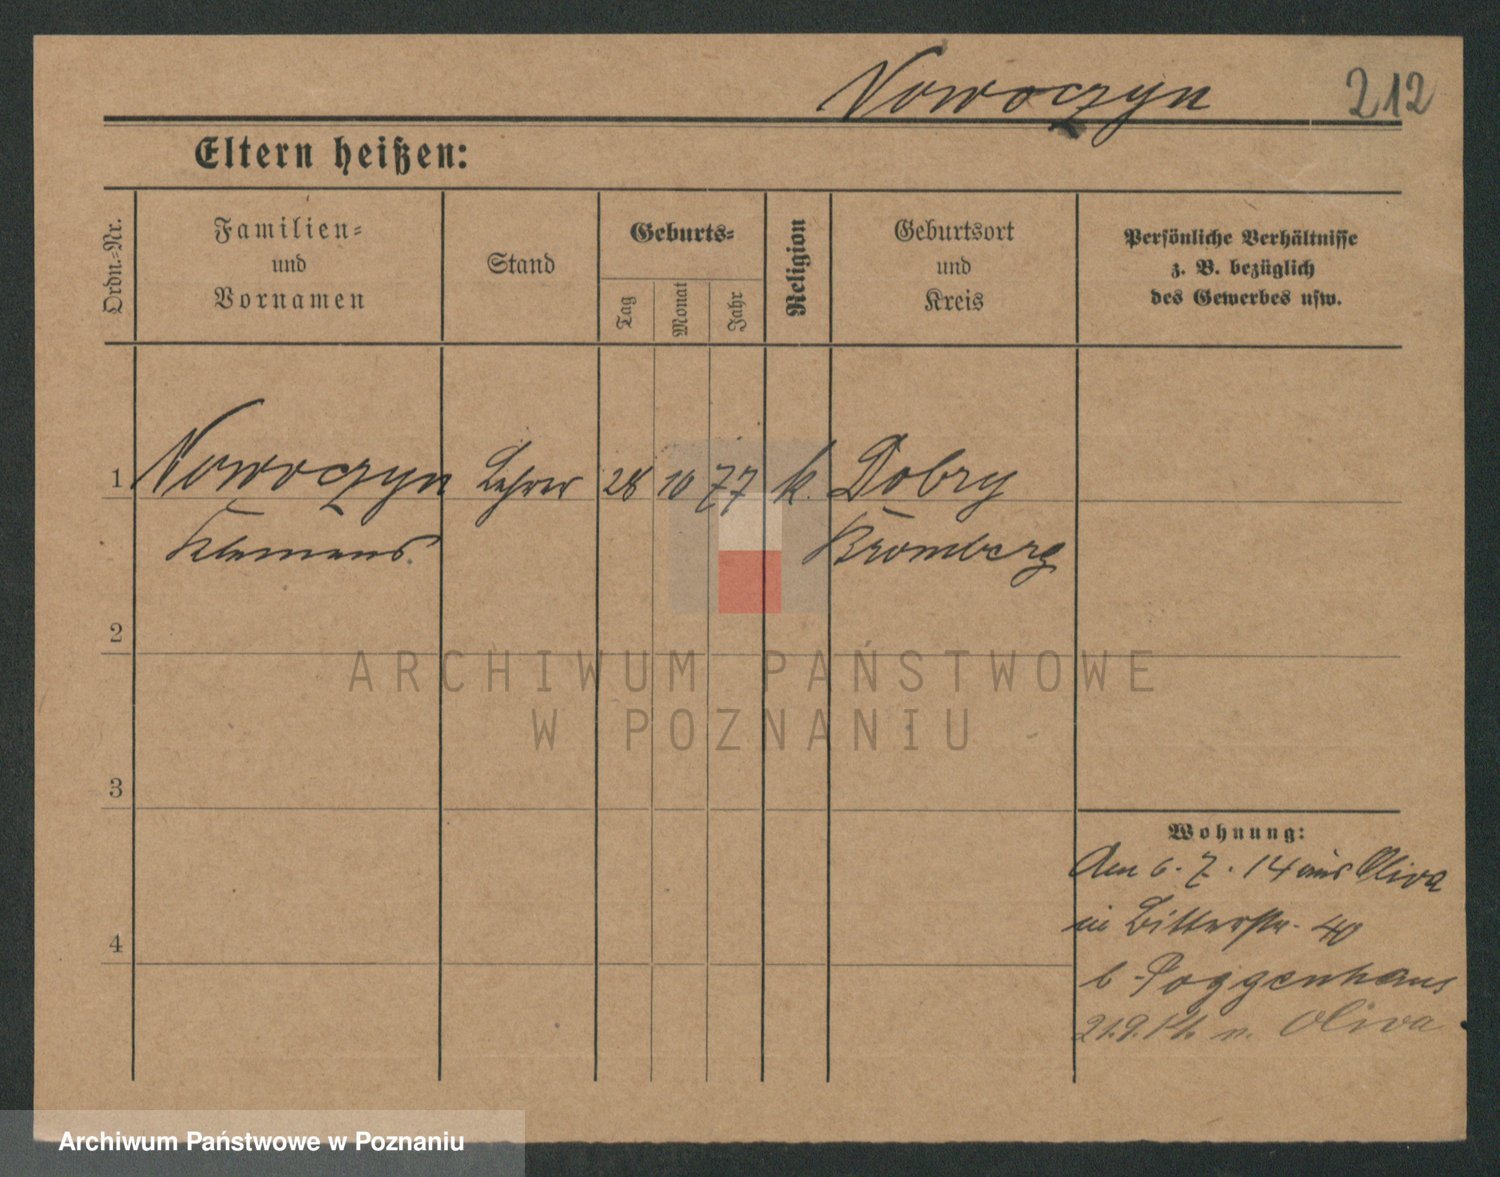 Nowoczyn 212
Eltern heißen:
Ordn.-Nr.
Familien-
und
Vornamen
Stand
Geburts-
Tag
Monat
Jahr
Religion
Geburtsort
und
Kreis
Persönliche Verhältnisse
z. B. bezüglich
des Gewerbes usw.
1 Nowoczyn Lehrer 28 10 77 k. Dobry
Klemens Bromberg
2
3
4
Wohnung:
Am 6. 7. 14 aus Oliva
in Ritterstr. 40
b. Poggenhans
21.9.14. n. Oliva
ARCHIWUM PAŃSTWOWE
W POZNANIU
Archiwum Państwowe w Poznaniu